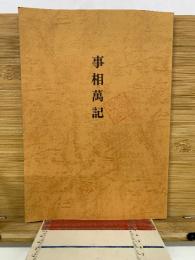 事相萬記